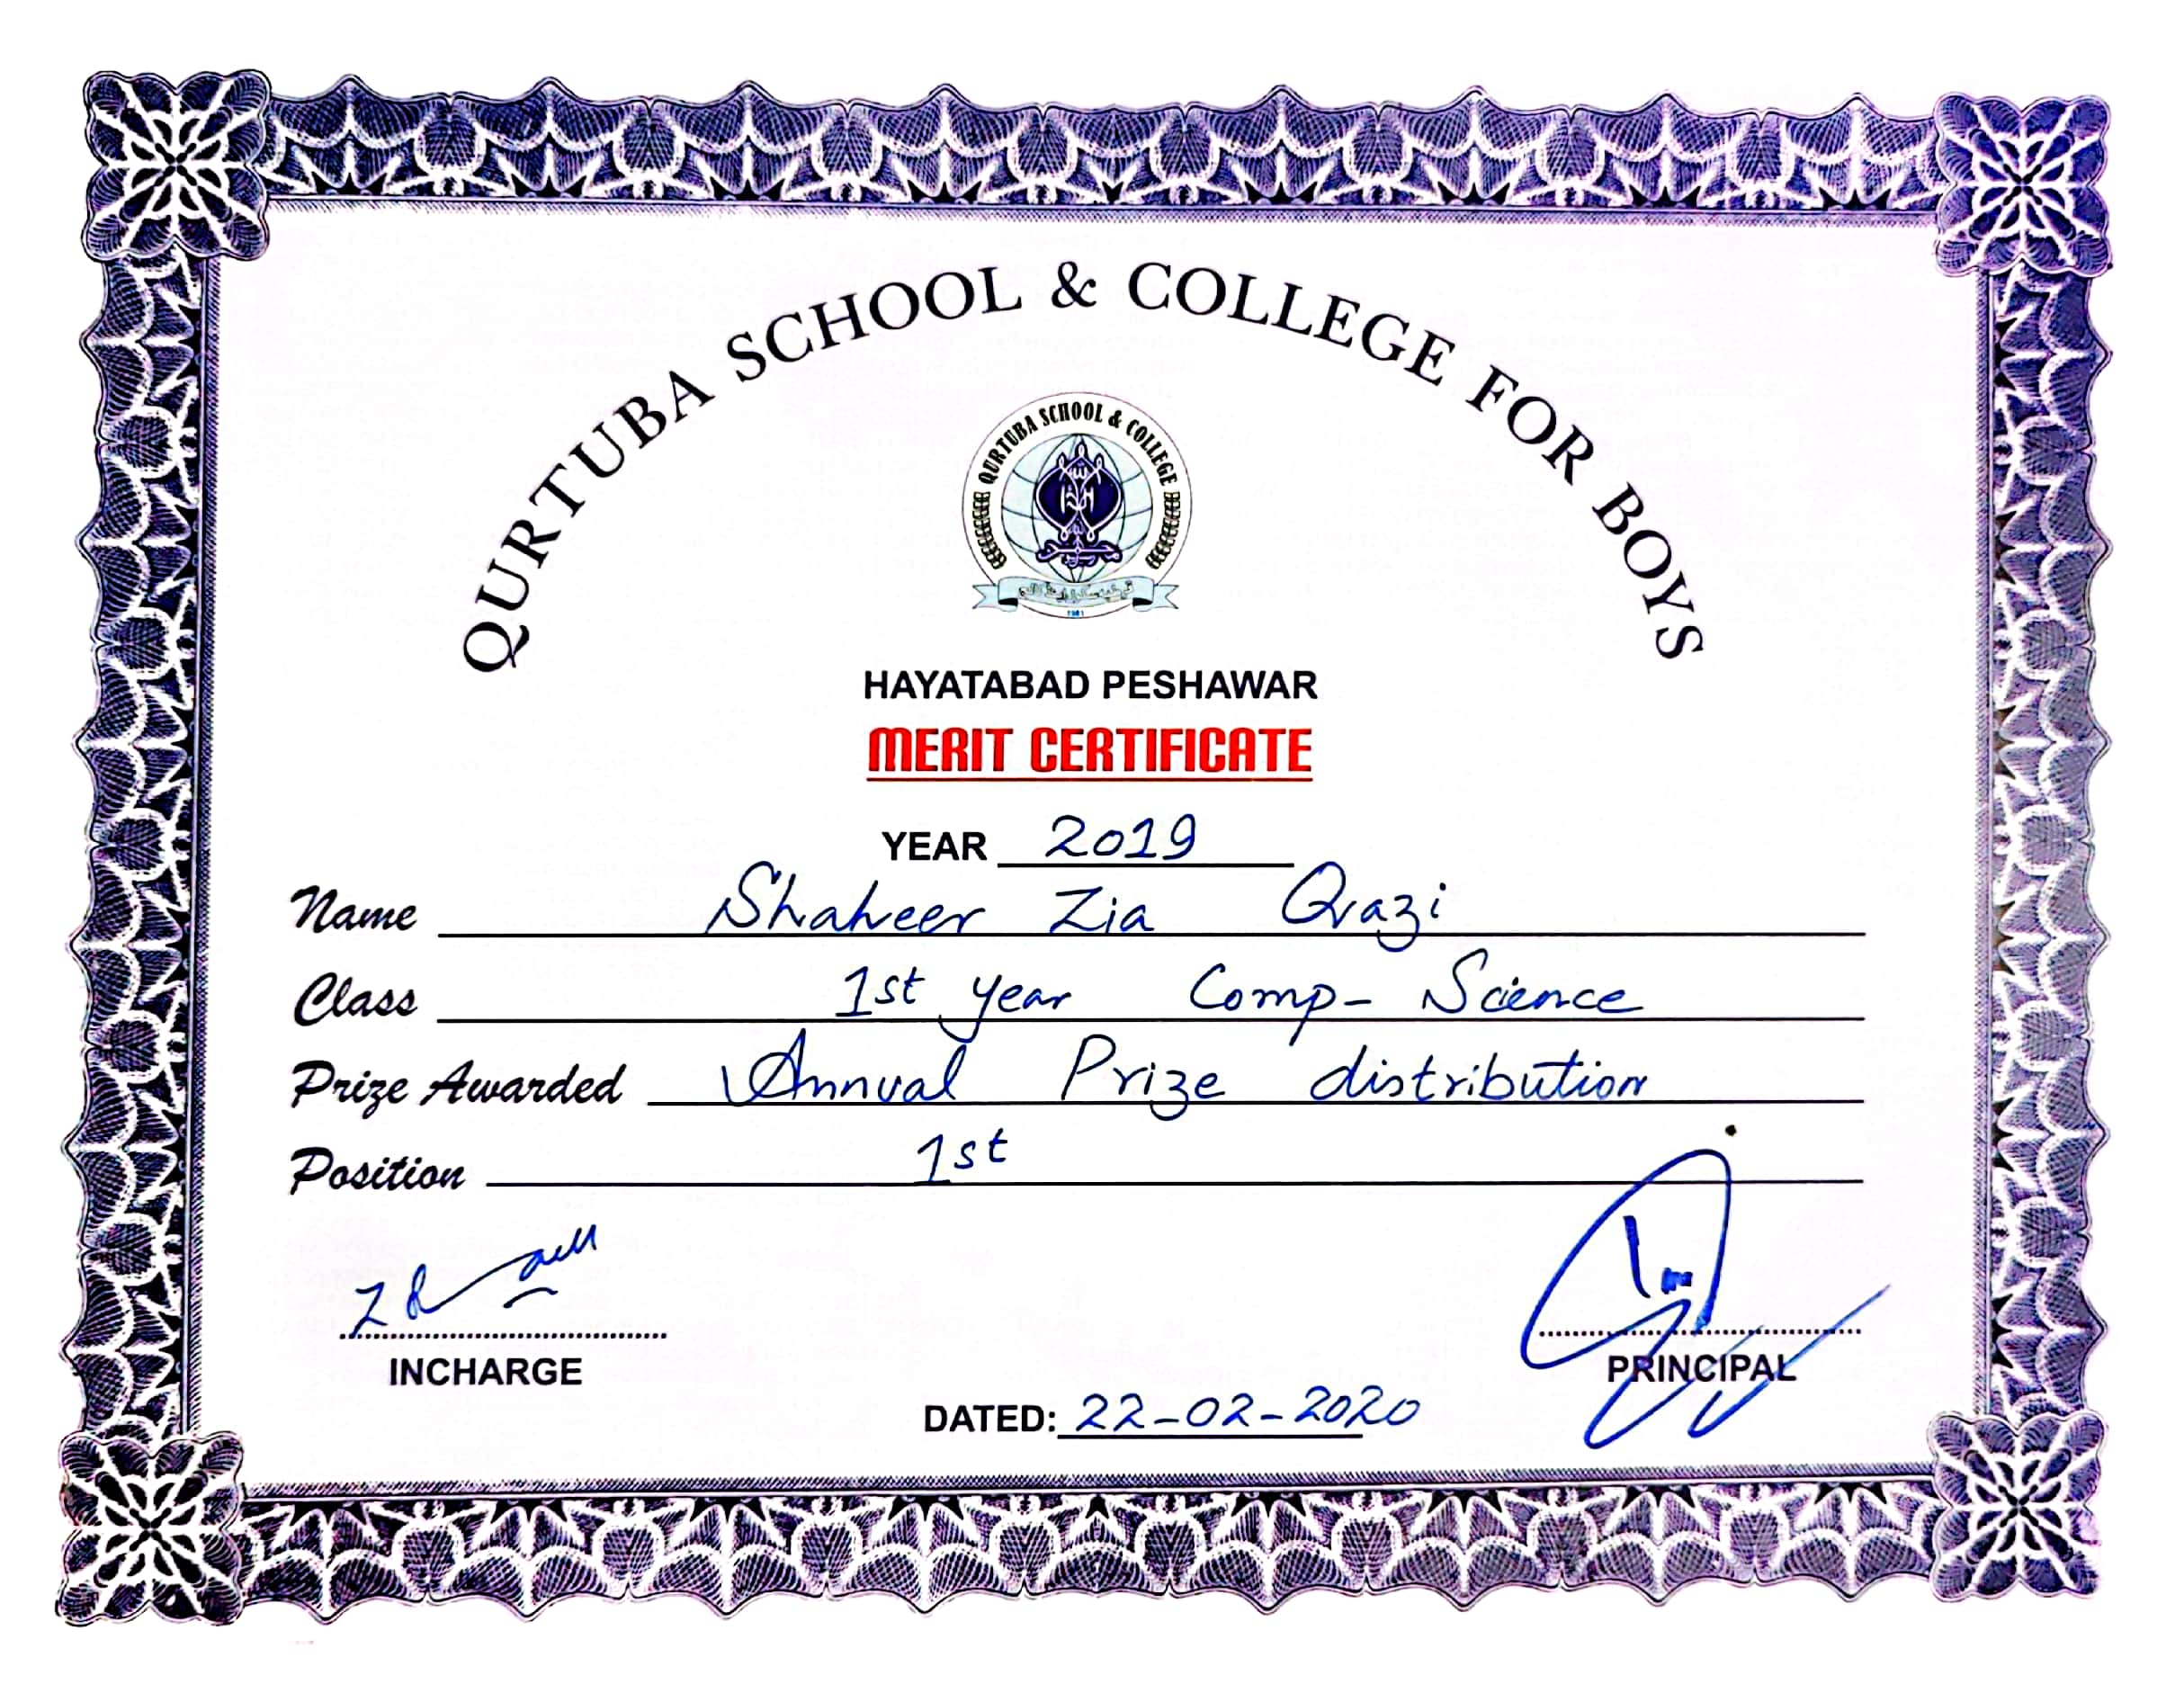 QURTUBA SCHOOL & COLLEGE FOR BOYS
QURTUBA SCHOOL & COLLEGE
1981
HAYATABAD PESHAWAR
MERIT CERTIFICATE
YEAR 2019
Name Shaheer Zia Qazi
Class 1st year Comp- Science
Prize Awarded Annual Prize distribution
Position 1st
INCHARGE
PRINCIPAL
DATED: 22-02-2020